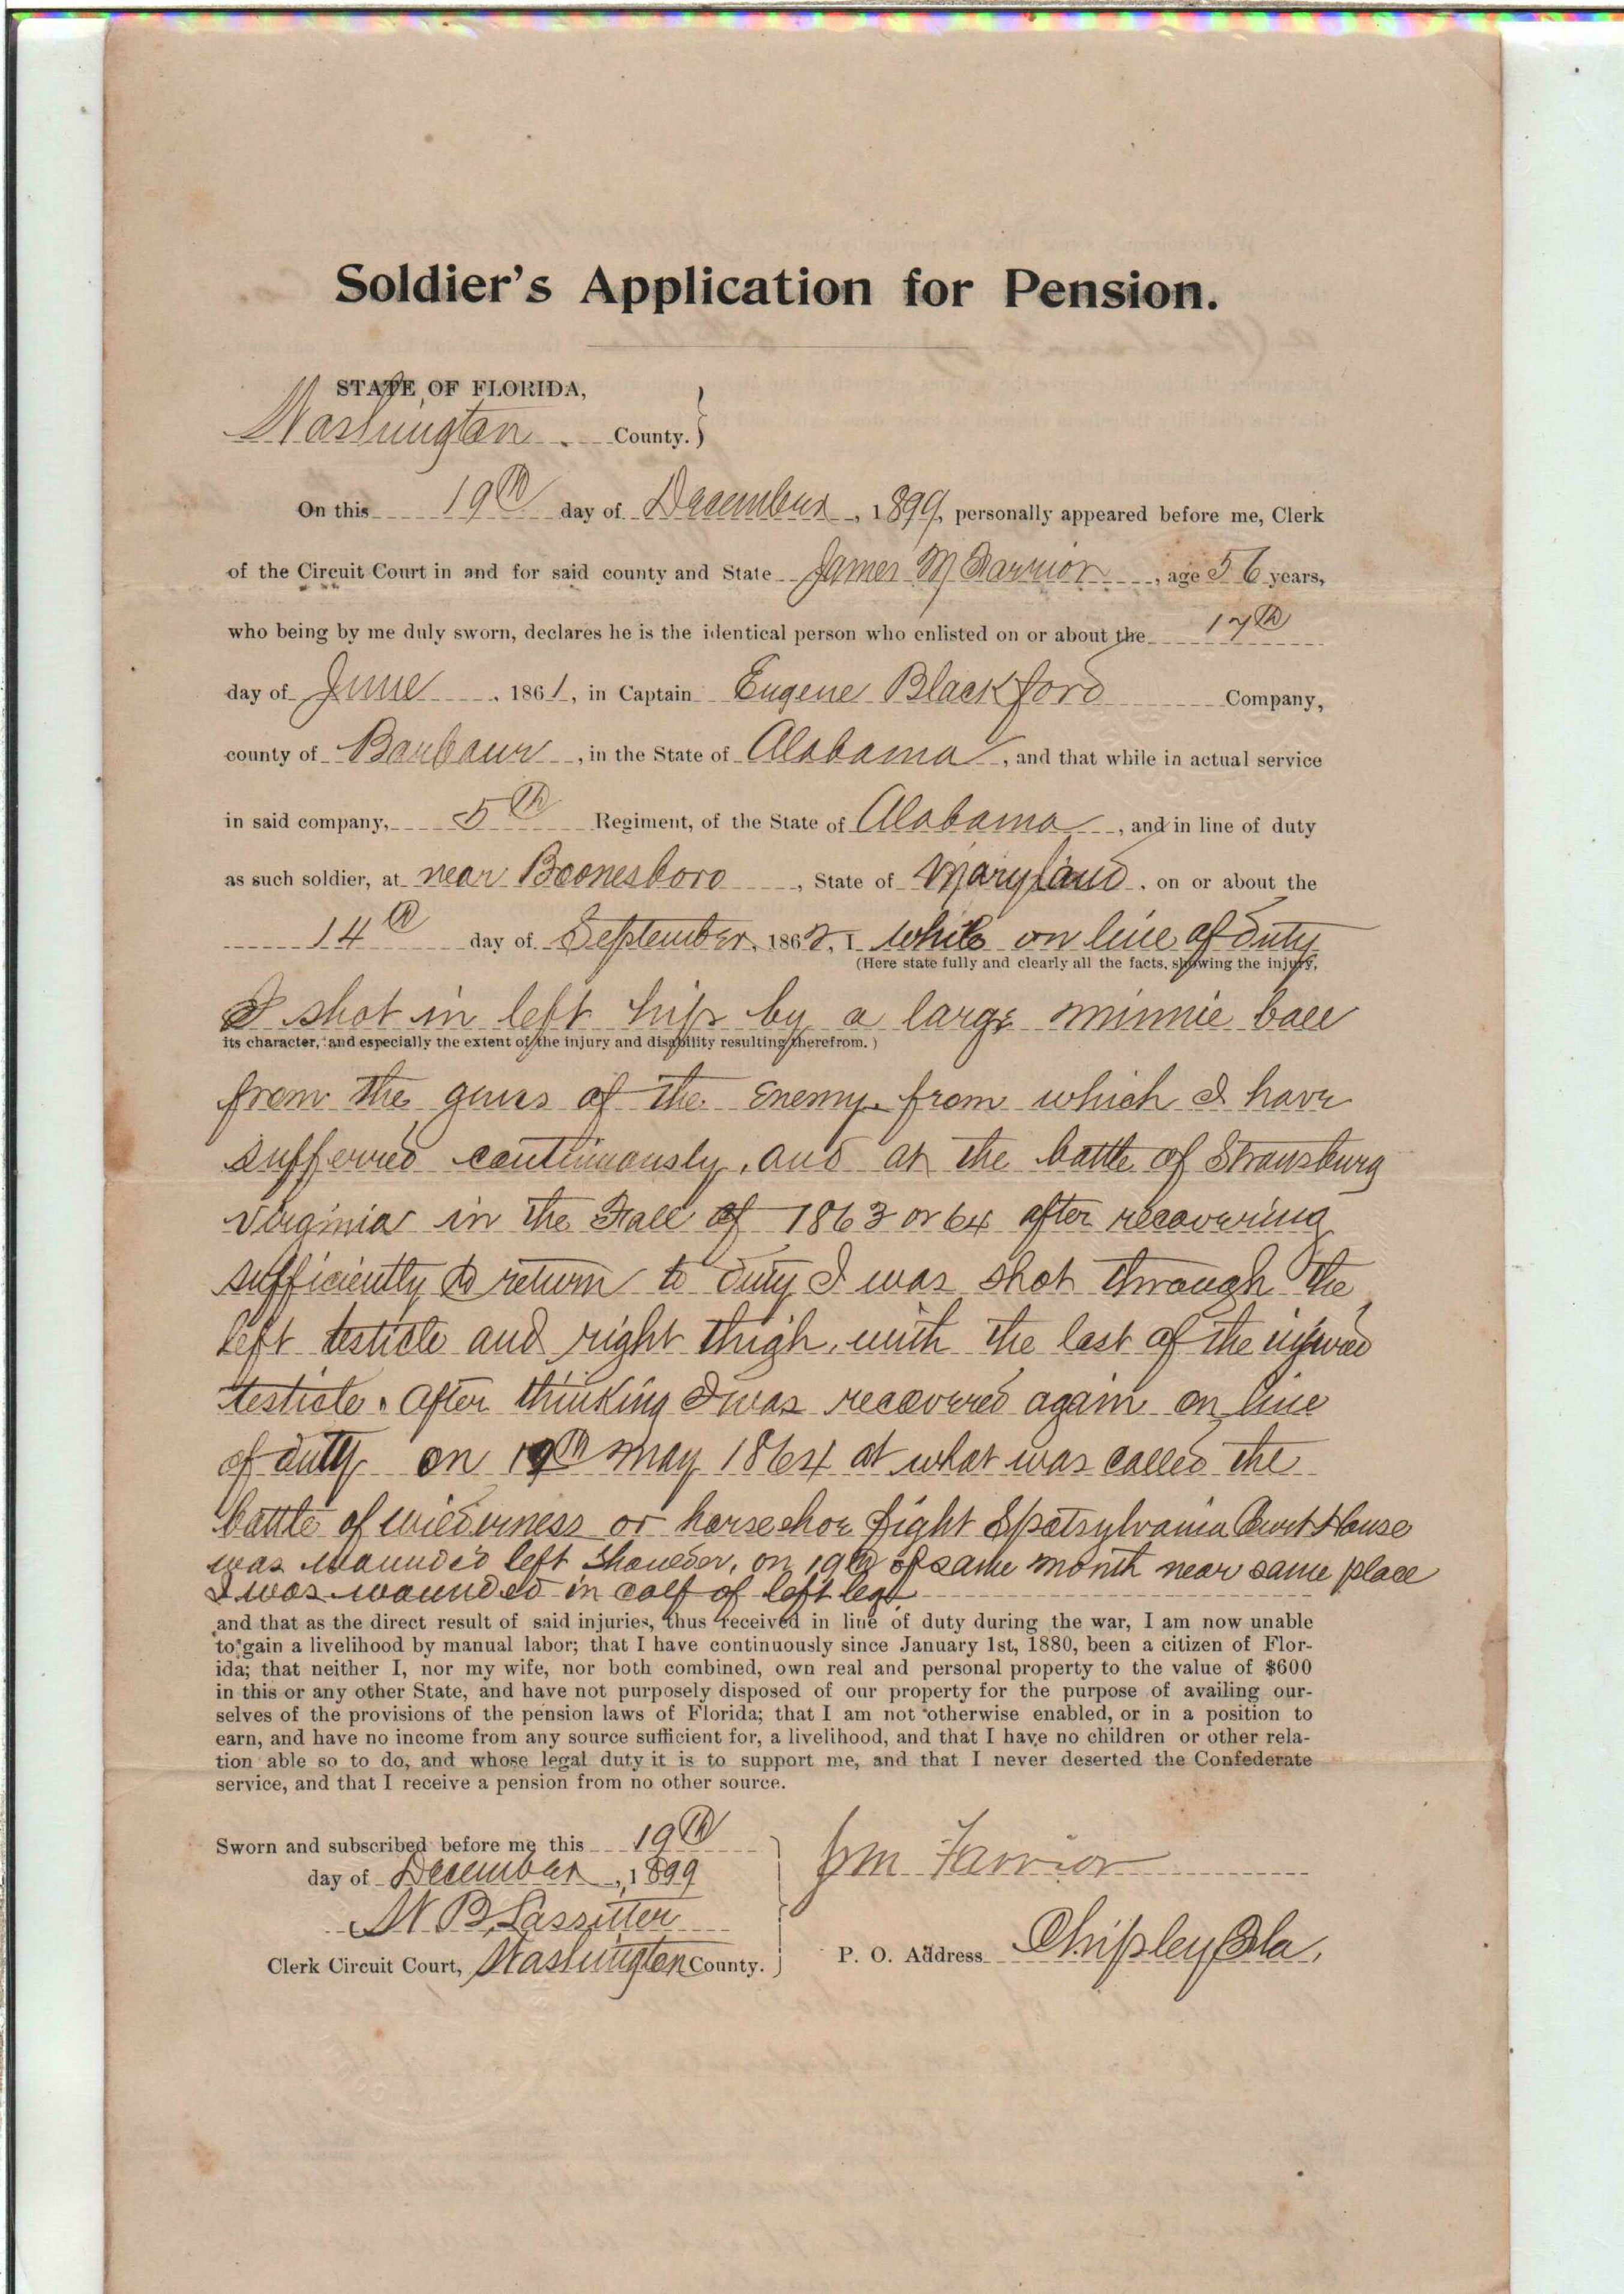 Soldier's Application for Pension.
STATE OF FLORIDA,
Washington County. }
On this 19th day of December, 1899, personally appeared before me, Clerk
of the Circuit Court in and for said county and State James M Farrior, age 56 years,
who being by me duly sworn, declares he is the identical person who enlisted on or about the 17th
day of June, 1861, in Captain Eugene Blackford Company,
county of Barbour, in the State of Alabama, and that while in actual service
in said company, 5th Regiment, of the State of Alabama, and in line of duty
as such soldier, at near Boonesboro, State of Maryland, on or about the
14th day of September, 1862, I while on line of duty
(Here state fully and clearly all the facts, showing the injury,
I shot in left hip by a large minnie ball
its character, and especially the extent of the injury and disability resulting therefrom.)
from the guns of the enemy from which I have
sufferred continuously, and at the battle of Strausburg
Virginia in the Fall of 1863 or 64 after recovering
sufficiently to return to duty I was shot through the
left testicle and right thigh, with the last of the injured
testicle. After thinking I was recovered again on line
of duty on May 1864 at what was called the
battle of wilderness or horseshoe fight Spotsylvania Court House
was wounded left shoulder, on 19th of same month near same place
I was wounded in calf of left leg
and that as the direct result of said injuries, thus received in line of duty during the war, I am now unable
to gain a livelihood by manual labor; that I have continuously since January 1st, 1880, been a citizen of Flor-
ida; that neither I, nor my wife, nor both combined, own real and personal property to the value of $600
in this or any other State, and have not purposely disposed of our property for the purpose of availing our-
selves of the provisions of the pension laws of Florida; that I am not otherwise enabled, or in a position to
earn, and have no income from any source sufficient for, a livelihood, and that I have no children or other rela-
tion able so to do, and whose legal duty it is to support me, and that I never deserted the Confederate
service, and that I receive a pension from no other source.
Sworn and subscribed before me this 19th
day of December, 1899
W B Lassitter
Clerk Circuit Court, Washington County. }
J m Farrior
P. O. Address Chipley Fla.